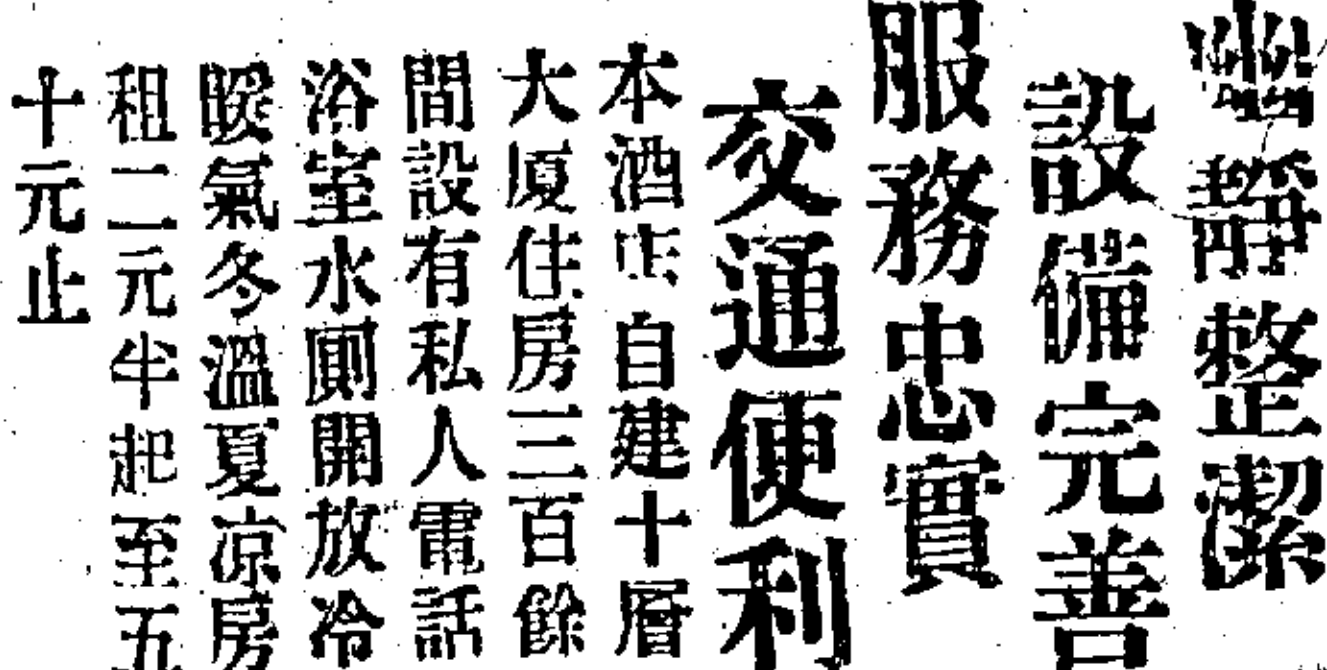 幽靜整潔
設備完善
服務忠實
交通便利
本酒店自建十層
大厦住房三百餘
間設有私人電話
浴室水厠開放冷
暖氣冬溫夏凉房
租二元半起至五
十元止